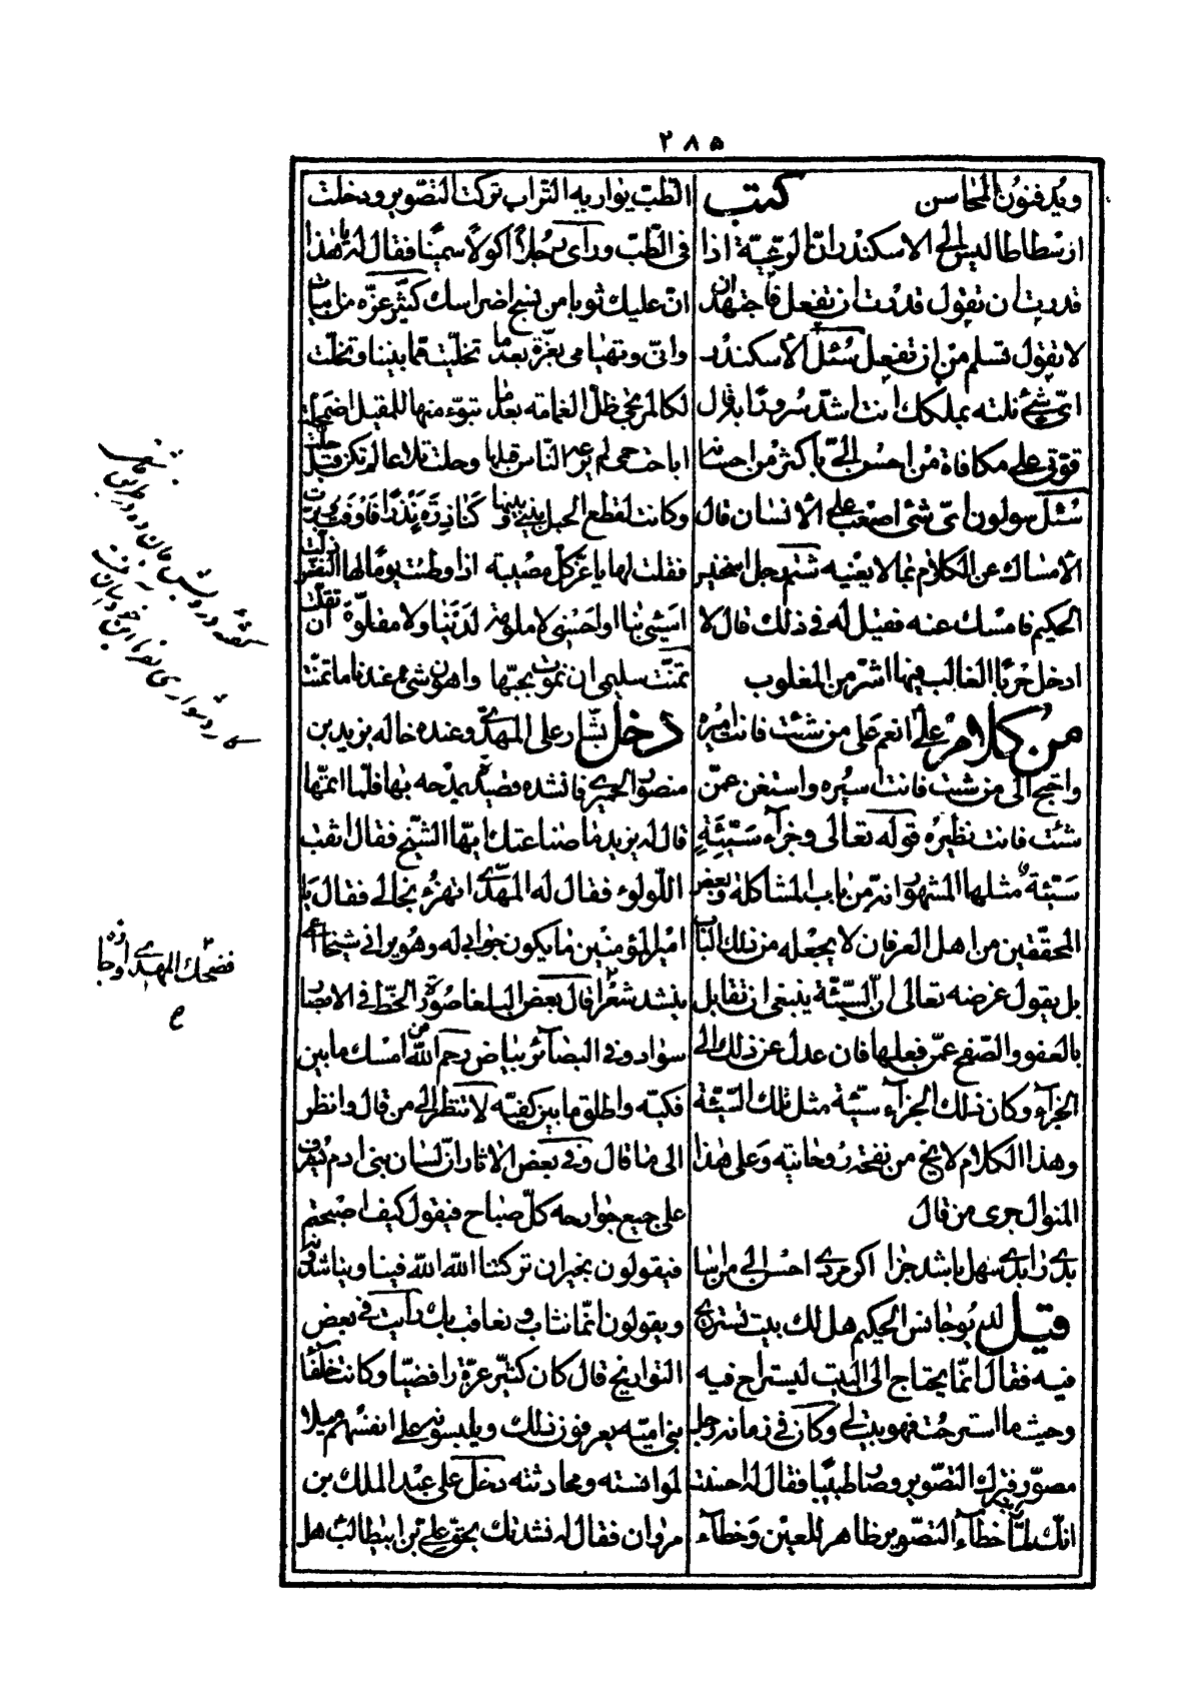 ٢٨٥
ويدفنون المحاسن كتب
ارسطاطاليس الى الاسكندر ان الرعية اذا
قدرت ان تقول قدرت ان تفعل فاجتهد ان
لا تقول تسلم من ان تفعل سئل الاسكندر
اى شئ نلته بملكك انت اشد سرورا به قال
قوتى على مكافاة من احسن الى باكثر من احسانه
سئل سولون اى شئ اصعب على الانسان قال
الامساك عن الكلام بما لا يعنيه شتم رجل اسخنيس
الحكيم فامسك عنه فقيل له فى ذلك قال لا
ادخل حربا الغالب فيها اشر من المغلوب
من كلام على انعم على من شئت فانت اميره
واحتج الى من شئت فانت اسيره واستغن عمن
شئت فانت نظيره قوله تعالى وجزآء سيئة
سيئة مثلها المشهور انه من باب المشاكلة وبعض
المحققين من اهل العرفان لا يجعله من ذلك الباب
بل يقول غرضه تعالى ان السيئة ينبغى ان تقابل
بالعفو والصفح عمن فعلها فان عدل عن ذلك الى
الجزآء وكان ذلك الجزآء سيئة مثل تلك السيئة
وهذا الكلام لا يخ من نفحة روحانية وعلى هذا
المنوال جرى من قال
بدى را بدى سهل باشد جزا اكر مردى احسن الى من اسا
قيل لديوجانس الحكيم هل لك بيت تستريح
فيه فقال انما يحتاج الى البيت ليستراح فيه
وحيث ما استرحت فهو بيت لى وكان فى زمانه رجل
مصور فترك التصوير وصار طبيبا فقال له احسنت
انك لما رأيت خطآء التصوير ظاهر للعين وخطآء
الطب يواريه التراب تركت التصوير ودخلت
فى الطب ورأى رجلا اكولا سمينا فقال له يا هذا
ان عليك ثوبا من نسج اضراسك كثير عزه من ابيات
وانى وتهيامى بعزة بعد ما تخليت مما بيننا وتخلت
لكالمرتجى ظل الغمامة بعد ما تبوء منها للمقيل اضمحلت
اباحت حمى لم يرعه الناس قبلها وحلت تلاعا لم تكن قبل حلت
وكانت لقطع الحبل بينى وبينها كناذرة نذرا فاوفت وبرت
فقلت لها يا عز كل مصيبة اذا وطنت يوما لها النفس ذلت
اسيئى بنا او احسنى لا ملومة لدينا ولا مقلوة ان تقلت
تمنت سليمى ان نموت بحبها واهون شئ عندنا ما تمنت
دخل بشار على المهدى وعنده خاله يزيد بن
منصور الحميرى فانشده قصيدة يمدحه بها فلما اتمها
قال له يزيد ما صناعتك ايها الشيخ فقال اثقب
اللؤلؤ فقال له المهدى اتهزء بخالى فقال يا
امير المؤمنين ما يكون جوابى له وهو يرانى شيخا اعمى
ينشد شعرا قال بعض البلغا صورة الخط فى الابصار
سواد وفى البصائر بياض رحم الله من امسك ما بين
فكيه واطلق ما بين كفيه لا تنظر الى من قال وانظر
الى ما قال وفى بعض الاثار ان لسان بنى ادم يشرف
على جميع جوارحه كل صباح فيقول كيف اصبحتم
فيقولون بخير ان تركتنا الله الله فينا ويناشدونه
ويقولون انما نثاب ونعاقب بك رأيت فى بعض
التواريخ قال كان كثير عزة رافضيا وكانت خلفا
بنى امية يعرفون ذلك ويلبسونه على انفسهم ميلا
لموانسته ومحادثته دخل على عبد الملك بن
مروان فقال له نشدتك بحق على بن ابيطالب هل
فضحك المهدى واجازه